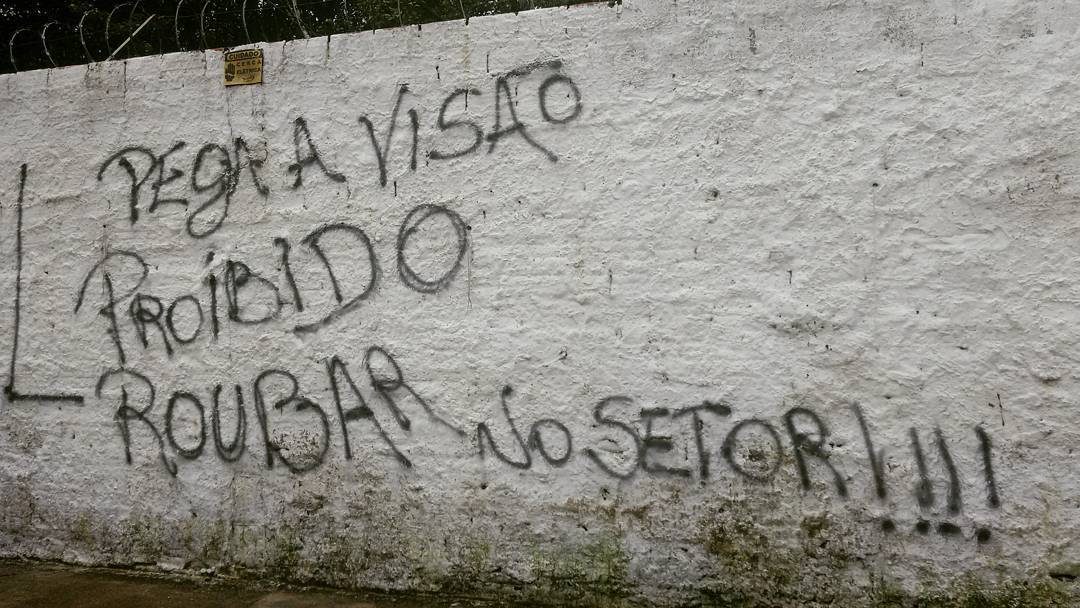 CUIDADO
CERCA
ELÉTRICA
PEGA A VISÃO
PROIBIDO
ROUBAR NO SETOR!!!!